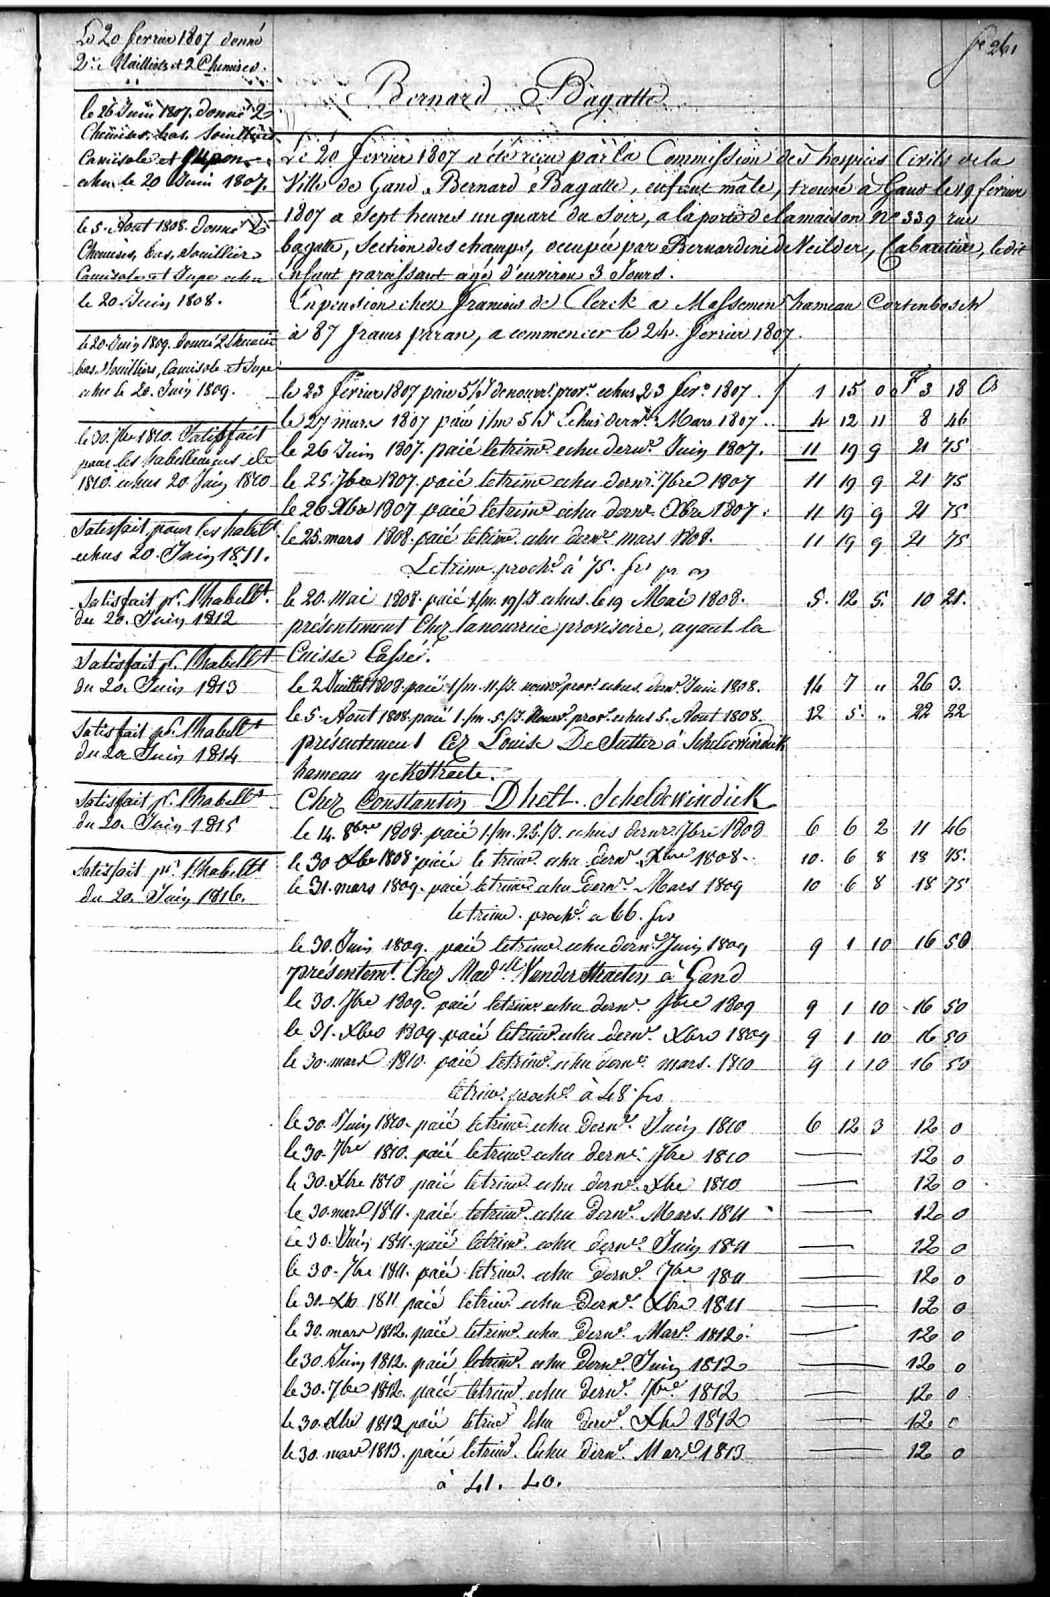 fo 261
Bernard Bagatte
Le 20 fevrier 1807 donné
2 Mailliots et 2 Chemises.
le 26 Juin 1807. donné 2
Chemises, bas, Souilliers
Camisole et Jupon
echu le 20 Juin 1807.
le 5. Aout 1808. Donné 2
Chemises, bas, Souilliers
Camisole et Jupe echu
le 20. Juin 1808.
le 20. Juin 1809. donné 2 Chemises
bas, Souilliers, Camisole et Jupe
echu le 20. Juin 1809.
le 30. 7bre 1810. Satisfait
pour les habillements de
1810. echus 20. Juin 1810
Satisfait pour les habillt
echus 20. Juin 1811.
Satisfait pr. l'habillt.
du 20. Juin 1812
Satisfait pr. l'habillt
du 20. Juin 1813
Satisfait pr. l'habillt
du 20 Juin 1814
Satisfait pr. l'habillt
du 20. Juin 1815
Satisfait pr. l'habillt
du 20. Juin 1816.
Le 20 fevrier 1807 a été reçu par la Commission des hospices Civils de la
Ville de Gand, Bernard Bagatte, enfant mâle, trouvé à Gand le 19 fevrier
1807 a Sept heures un quart du Soir, a la porte de la maison No 339 rue
bagatte, Section des champs, occupée par Bernardine de Neilder, Cabaretière, ledit
Enfant paraissant agé d'environ 3 Jours.
En pension chez Francois de Clerck a Massemen hameau Cortenbosch
à 87 francs par an, a commencer le 24. fevrier 1807.
le 23 fevrier 1807 paié 5/J de nourre. provre. echus 23 fevr. 1807. 1 15 0 F 3 18 C
le 27 mars 1807 paié 1/m 5/J Echus dernr. Mars 1807.. 4 12 11 8 46
le 26 Juin 1807. paié le trimre. echu dernr. Juin 1807. 11 19 9 21 75
le 25. 7bre 1807. paié le trimre echu dernr. 7bre 1807 11 19 9 21 75
le 26 Xbre 1807 paié le trimre. echu dernr. Xbre 1807. 11 19 9 21 75
le 25. mars 1808. paié le trimre. echu dernr. mars 1808. 11 19 9 21 75
Le trime. proche. à 75. frs pr an
le 20. Mai 1808. paié 1/m. 19/J echus. le 19 Mai 1808. 5. 12 5. 10 21.
présentement Chez la nourrice provisoire, ayant la
Cuisse Cassée.
le 2 Juillet 1808. paié 1/m. 11./J. nourre. provre. echus. dernr. Juin 1808. 14 7 „ 26 3.
le 5. Aout 1808. paié 1./m. 5./J. Nourre. provre. echus 5. Aout 1808. 12 5. „ 22 22
présentement Cez Louise De Sutter à Scheldewindick
hameau
Chez Constantin Dhett. Scheldewindick
le 14. 8bre 1808. paié 1./m. 25./J. echus dernr. 7bre 1808 6 6 2 11 46
le 30 Xbre 1808. paié le trimre. echu dernr. Xbre 1808. 10. 6 8 18 75.
le 31. mars 1809. paié le trimre echu dernr. Mars 1809 10 6 8 18 75
le trime. proche. a 66. frs
le 30. Juin 1809. paié le trimre echu dernr. Juin 1809 9 1 10 16 50
présentemt. Chez Madlle. Vander Straeten à Gand
le 30. 7bre 1809. paié le trimre. echu dernr. 7bre 1809 9 1 10 16 50
le 31. Xbre 1809. paié le trimre. echu dernr. Xbre 1809 9 1 10 16 50
le 30. mars 1810. paié le trimre. echu dernr. mars. 1810 9 1 10 16 50
le trimre. proche. à 48. frs
le 30. Juin 1810. paié le trimre. echu dernr. Juin 1810 6 12 3 12 0
le 30. 7bre 1810. paié le trimre. echu dernr. 7bre 1810 — 12 0
le 30. Xbre 1810 paié le trimre. echu dernr. Xbre 1810 — 12 0
le 30. mars 1811. paié le trimre. echu dernr. Mars. 1811 — 12 0
le 30. Juin 1811. paié le trimre. echu dernr. Juin 1811 — 12 0
le 30. 7bre 1811. paié le trimre. echu dernr. 7bre 1811 — 12 0
le 31. Xbre 1811 paié le trimre. echu dernr. Xbre 1811 — 12 0
le 30. mars 1812. paié le trimre. echu dernr. Mars. 1812. — 12 0
le 30. Juin 1812. paié le trimre. echu dernr. Juin 1812 — 12 0
le 30. 7bre 1812. paié le trimre. echu dernr. 7bre 1812 — 12 0
le 30. Xbre 1812 paié le trimre Echu dernr. Xbre 1812 — 12 0
le 30. mars 1813. paié le trimre. Echu dernr. Mars 1813 — 12 0
à 41. 40.